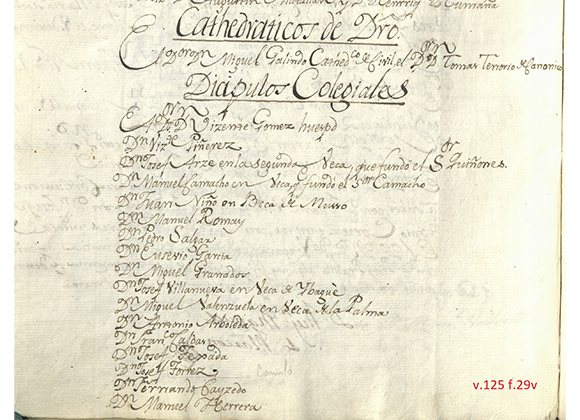 Cathedraticos de Dro.
El Dor Dn Miguel Galindo Cathedco de Civil, el Dr Dn Tomas Tenorio de Canonico
Dicipulos Colegiales
El Dr Dn Vizente Gomez huesp.d
Dn Viz.te Piñerez
Dn Josef Arze en la segunda Veca, que fundo el Sor Quiñones.
Dn Manuel Camacho en Veca q fundo el Sor Camacho
Dn Juan Niño en Beca de Muro
Dn Manuel Romay
Dn Pedro Salgar
Dn Eusevio Garcia
Dn Miguel Granados
Dn Josef Villanueva en Veca de Ybaguè
Dn Miguel Valenzuela en Veca de la Palma
Dn Antonio Arboleda
Dn Franco Caldas
Dn Josef Tejada
Dn Josef Torrez
Dn Fernando Cayzedo
Dn Manuel Herrera
v.125 f.29v